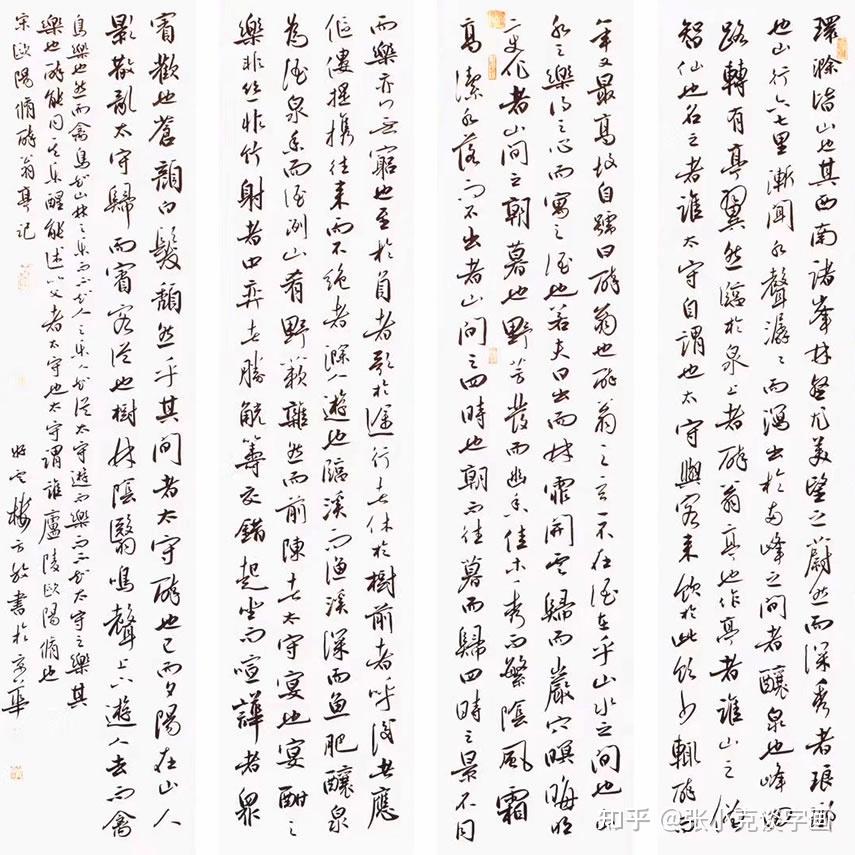 環滁皆山也其西南諸峯林壑尤美望之蔚然而深秀者琅琊
也山行六七里漸聞水聲潺々而瀉出於兩峰之間者釀泉也峰回
路轉有亭翼然臨於泉上者醉翁亭也作亭者誰山之僧
智仙也名之者誰太守自謂也太守與客來飲於此飲少輒醉而
年又最高故自號曰醉翁也醉翁之意不在酒在乎山水之間也山
水之樂得之心而寓之酒也若夫日出而林霏開雲歸而巖穴暝晦明
變化者山間之朝暮也野芳發而幽香佳木秀而繁陰風霜
高潔水落而石出者山間之四時也朝而往暮而歸四時之景不同
而樂亦以無窮也至於負者歌於途行者休於樹前者呼後者應
傴僂提攜往來而不絕者滁人遊也臨溪而漁溪深而魚肥釀泉
為酒泉香而酒洌山肴野蔌雜然而前陳者太守宴也宴酣之
樂非絲非竹射者中弈者勝觥籌交錯起坐而喧譁者眾
賓歡也蒼顏白髮頹然乎其間者太守醉也已而夕陽在山人
影散亂太守歸而賓客從也樹林陰翳鳴聲上下遊人去而禽
鳥樂也然而禽鳥知山林之樂而不知人之樂人知從太守遊而樂而不知太守之樂其
樂也醉能同其樂醒能述以文者太守也太守謂誰廬陵歐陽脩也
宋歐陽脩醉翁亭記
樓方 書於京華
知乎 @张小克谈字画